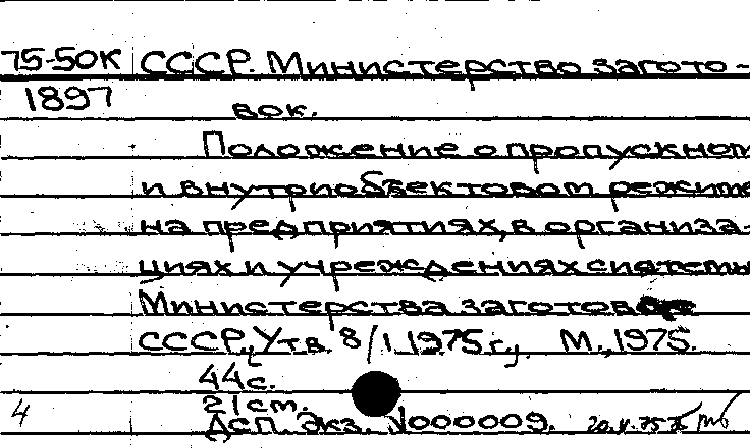 75-50К СССР. Министерство загото-
1897 вок.
Положение о пропускном
и внутриобъектовом режиме
на предприятиях, в организа-
циях и учреждениях системы
Министерства заготовок
СССР. Утв. 8/I 1975 г., М., 1975.
44 с.
21 см.
4 Дсп. Экз. №000009. 20.V.75